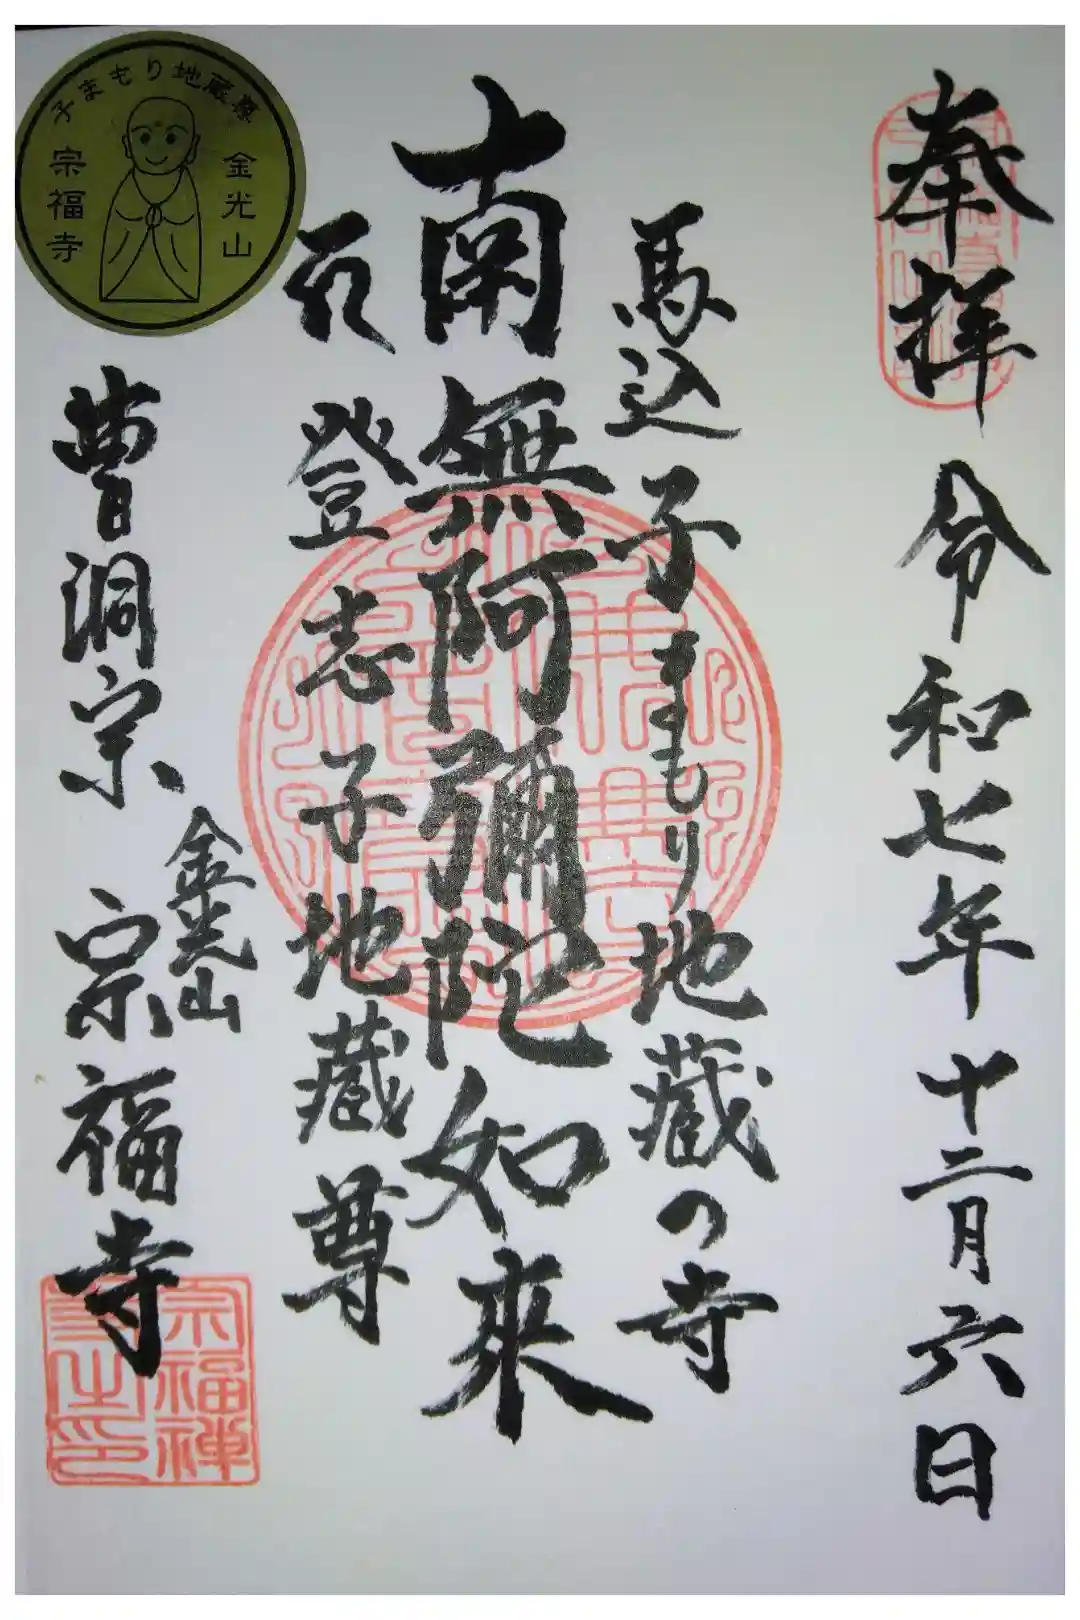 奉拝
令和七年十二月六日
馬込子まもり地蔵の寺
南無阿彌陀如來
登志子地蔵尊
曹洞宗
金光山
宗福寺
子まもり地蔵尊
金光山
宗福寺
宗福禅
寺之印